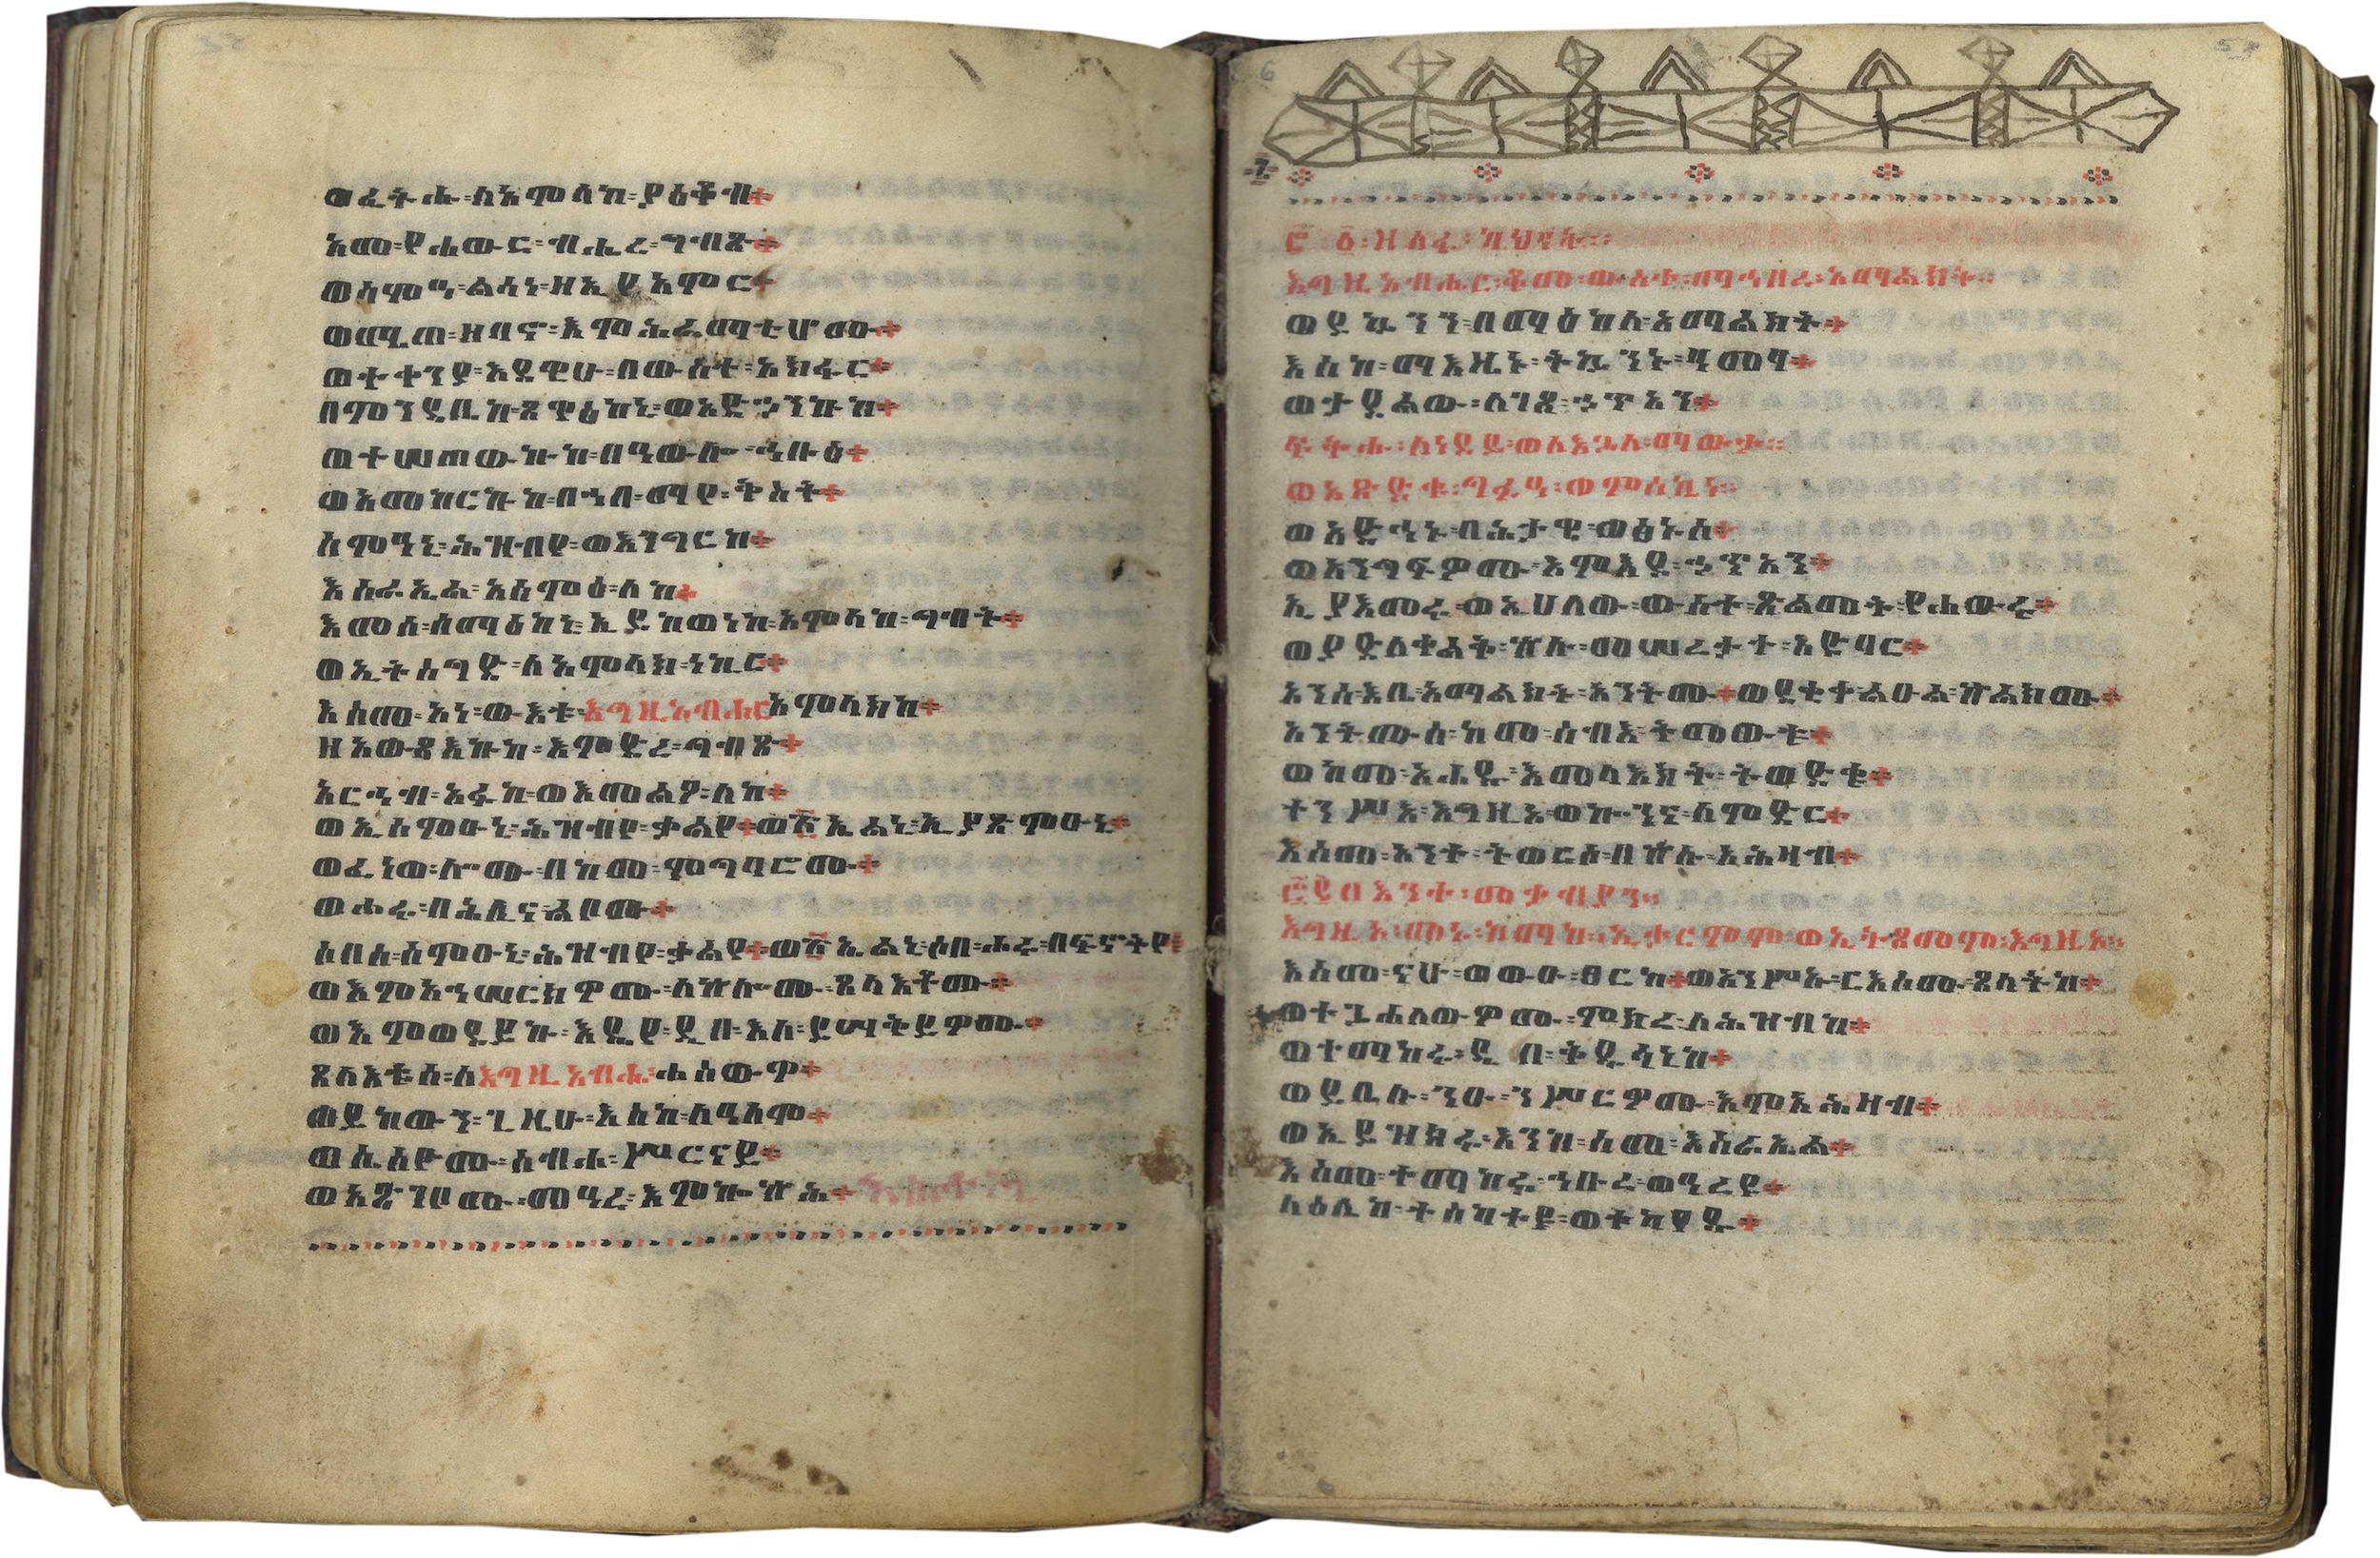 ወፈትሐ፡ለአምላከ፡ያዕቆብ።
አመ፡የሐውር፡ብሔረ፡ግብጽ።
ወሰምዐ፡ልሳነ፡ዘኢያአምር።
ወሜጠ፡ዘባኖ፡እምሕራማቲሆሙ።
ወተቀንያ፡እደዊሁ፡በውስተ፡አክፋር።
በምንዳቤከ፡ጸዋዕከኒ፡ወአድኀንኩከ።
ወተሠጠውኩከ፡በዓውሎ፡ኅቡዕ።
ወአመከርኩከ፡በኀበ፡ማየ፡ቅስት።
ስምዓኒ፡ሕዝብየ፡ወእንግርከ።
እስራኤል፡አሰምዕ፡ለከ።
እመሰ፡ሰማዕከኒ፡ኢይከውነከ፡አምላከ፡ግብት።
ወኢትስግድ፡ለአምላክ፡ነኪር።
እስመ፡አነ፡ውእቱ፡እግዚአብሔር፡አምላክከ።
ዘአውጻእኩከ፡እምድረ፡ግብጽ።
አርኅብ፡አፉከ፡ወእመልዖ፡ለከ።
ወኢሰምዑኒ፡ሕዝብየ፡ቃልየ። ኢያጽምዑኒ።
ወፈነው፡ሎሙ፡በከመ፡ምግባሮሙ።
ወሖሩ፡በሕሊና፡ልቦሙ።
ሶበሰ፡ሰምዑኒ፡ሕዝብየ፡ቃልየ። ሶበ፡ሖሩ፡በፍኖትየ።
ወእምአኅሠርክዎሙ፡ለኵሎሙ፡ጸላእቶሙ።
ወእምወደይኩ፡እዴየ፡ዲበ፡እለ፡ይሣቅይዎሙ።
ጸላእቱሰ፡ለእግዚአብሔር፡ሐሰውዎ።
ወይከውን፡ጊዜሁ፡እስከ፡ለዓለም።
ወሴሰዮሙ፡ስብሐ፡ሥርናይ።
ወአጽገቦሙ፡መዓረ፡እምኰኵሕ።
መዝሙር ዘአሳፍ፡
እግዚአብሔር፡ቆመ፡ውስተ፡ማኅበረ፡አማልክት።
ወይኴንን፡በማዕከለ፡አማልክት።
እስከ፡ማእዜኑ፡ትኴንኑ፡ዓመፃ።
ወታደልው፡ለገጸ፡ኃጥአን።
ፍትሑ፡ለነዳይ፡ወለእጓለ፡ማውታ።
ወአጽድቁ፡ግፉዓ፡ወምስኪነ።
ወአድኅኑ፡ባሕታዌ፡ወፅኑሰ።
ወአንግፍዎሙ፡እምእደ፡ኃጥአን።
ኢያእመሩ፡ወኢሀለው፡ውስተ፡ጽልመት፡የሐውሩ።
ወያድለቀልቅ፡ኵሉ፡መሠረታተ፡አድባር።
አንሰ፡እቤ፡አማልክት፡አንትሙ።ወደቂቀ፡ልዑል፡ኵልክሙ።
አንትሙሰ፡ከመ፡ሰብእ፡ትመውቱ።
ወከመ፡አሐዱ፡እመላእክት፡ትወድቁ።
ተንሥእ፡እግዚኦ፡ወኰንና፡ለምድር።
እስመ፡አንተ፡ትወርስ፡በኵሉ፡አሕዛብ።
እግዚኦ፡መኑ፡ከማከ፡ኢታርምም፡ወኢትጸመም፡እግዚኦ።
እስመ፡ናሁ፡ወውዑ፡ፀርከ።ወአንሥኡ፡ርእሰሙ፡ጸላትከ።
ወተጓሕለውዎሙ፡ምክረ፡ለሕዝብከ።
ወተማከሩ፡ዲበ፡ቅዱሳኒከ።
ወይቤሉ፡ንዑ፡ንሥርዎሙ፡እምአሕዛብ።
ወኢይዝክሩ፡እንከ፡ስመ፡እስራኤል።
እስመ፡ተማከሩ፡ኅቡረ፡ወዓረየ።
ላዕሌከ፡ተሰከተዩ፡ወተካየዱ።